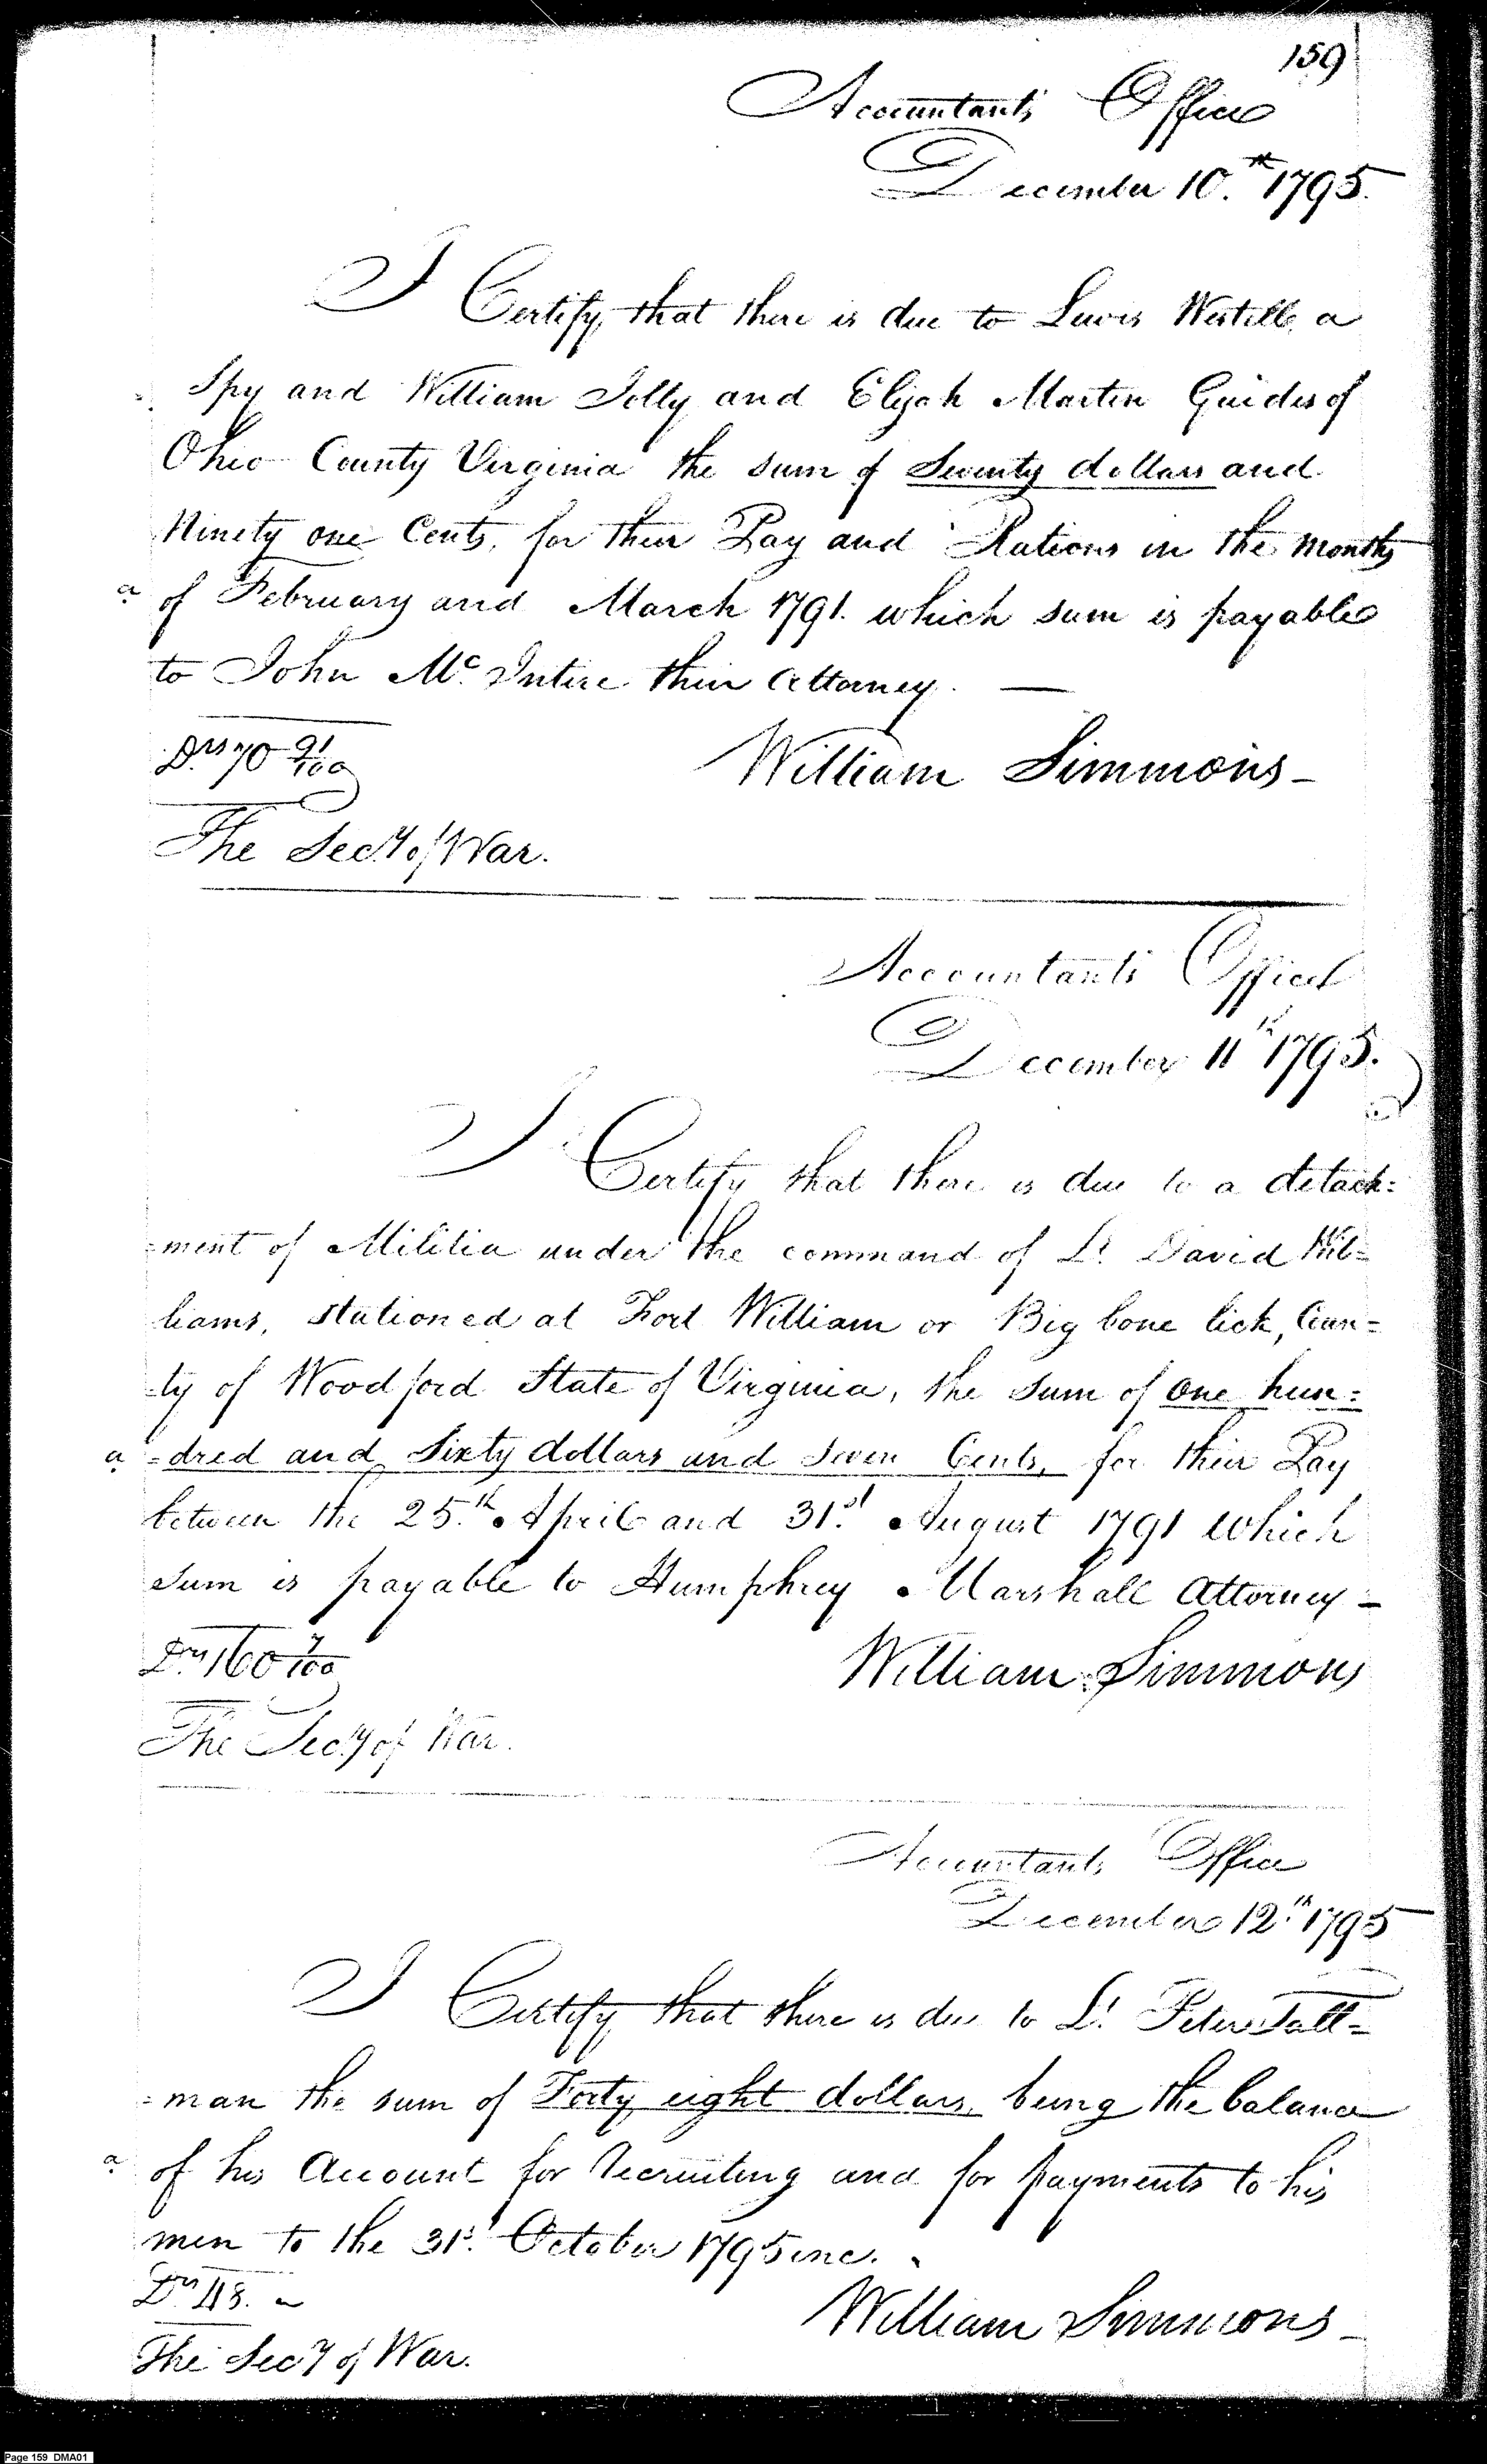 159
Accountants Office
December 10.th 1795.
I Certify, that there is due to Lewis Westell, a
Spy and William Jolly and Elijah Martin Guides of
Ohio County Virginia the sum of Seventy dollars and
Ninety one Cents, for their Pay and Rations in the months
a. of February and March 1791. which sum is payable
to John Mc. Intire their Attorney. —
Drs 70 91/100
William Simmons -
The Secy. of War.
Accountants Office
December 11th 1795.
I Certify that there is due to a detach=
=ment of Militia under the command of Lt. David Wil=
liams, stationed at Fort William or Big bone lick, Coun=
-ty of Woodford State of Virginia, the sum of One hun=
a. =dred and Sixty dollars and Seven Cents, for their Pay
between the 25.th April and 31.st August 1791 which
sum is payable to Humphrey Marshall Attorney -
Drs 160 7/100
William Simmons
The Secy. of War.
Accountants Office
December 12.th 1795
I Certify that there is due to Lt. Peter Tall=
=man the sum of Forty eight dollars, being the balance
a. of his Account for recruiting and for payments to his
men to the 31st. October 1795 inc.
Drs 48.
William Simmons -
The Secy of War.
Page 159 DMA01